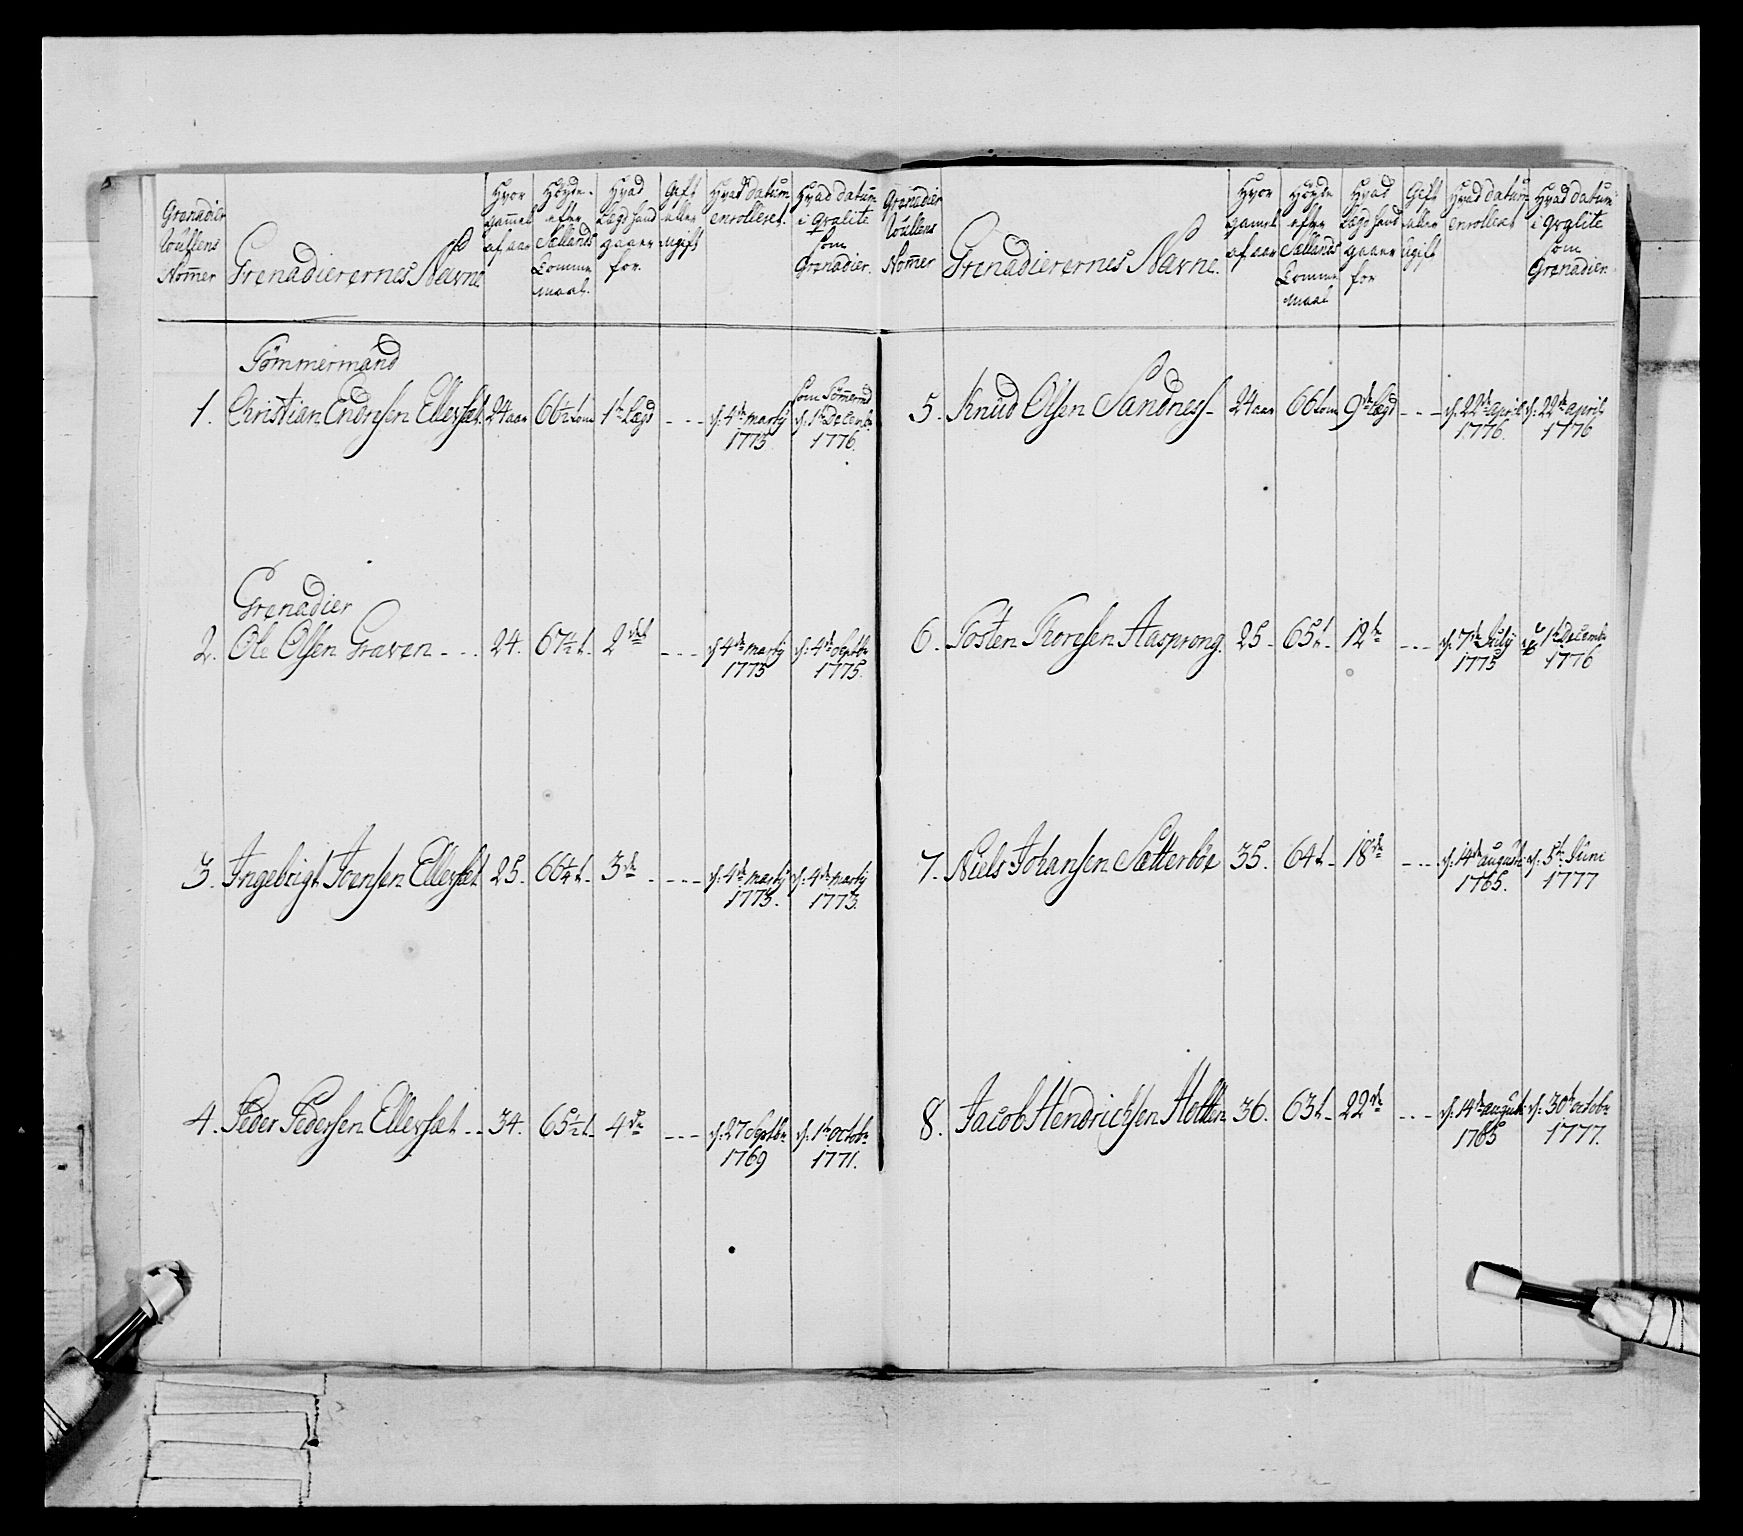 Grenadier
Rullens
Nom̄er
Grenadierernes Navne
Hvor
gam̄el
af aar
Høyde
efter
Sællands
Tomme
maal.
Hvad
Lægd hand
gaaer
for.
Gift
eller
ugift
Hvad datum
enrolleret.
Hvad datum
i qvalite
som
Grenadier.
Tømmermand
1. Christian Endresen Ellevset. 24 aar 66½ tom 1te Lægd - - - d: 4de Marty 1773 som Tøm̄ermd d: 1te Decemb: 1776.
Grenadier
2. Ole Olsen Graven - - - 24. 67½ t. 2det - - - d: 4de Marty 1773 d: 4de Septbr 1775.
3. Ingebrigt Joensen Ellevset 25. 66¼ t. 3de - - - d: 4de Marty 1773. d: 4de Marty 1773.
4. Peder Pedersen Ellevset - - 34. 65½ t. 4de - - - d: 27 Septbr 1769 d: 1te Octobr 1771.
Grenadier
Rullens
Nom̄er
Grenadierernes Navne.
Hvor
gamel
af aar
Høyde
efter
Sællands
Tomme
maal
Hvad
Lægd hand
gaaer
for
Gift
eller
ugift
Hvad datum
enrolleret
Hvad datum
i qvalite
som
Grenadier.
5. Knud Olsen Sandnes - 24 aar 66 tom 9de Lægd - - - d: 22de April 1776. d: 22de April 1776
6. Tosten Thoresen Aasprong. 25 - 65 t. 12te - - - d: 7de July 1775 1te Decemb: 1776
7. Niels Johansen Sætterbøe 35. 64 t. 18de - - - d: 14de August 1765. d: 5te Juni 1777
8. Jacob Hendrichsen Hetlen 36. 63 t. 22de - - - d: 14de August 1765 d: 30te Octobr 1777.